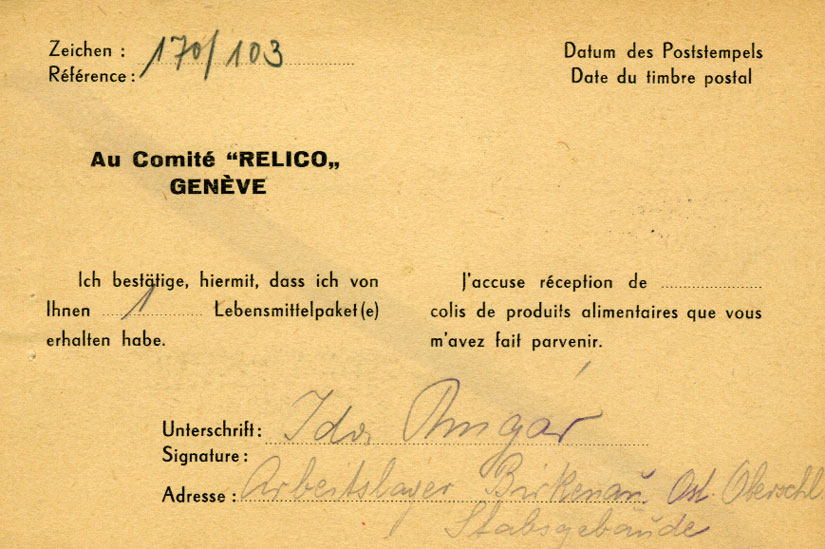 Zeichen :
Référence :
170/103
Datum des Poststempels
Date du timbre postal
Au Comité “RELICO„
GENÈVE
Ich bestätige, hiermit, dass ich von
Ihnen 1 Lebensmittelpaket(e)
erhalten habe.
J'accuse réception de
colis de produits alimentaires que vous
m'avez fait parvenir.
Unterschrift: Ida
Signature :
Adresse : Arbeitslager Birkenau. Ost. Oberschl.
Stabsgebäude